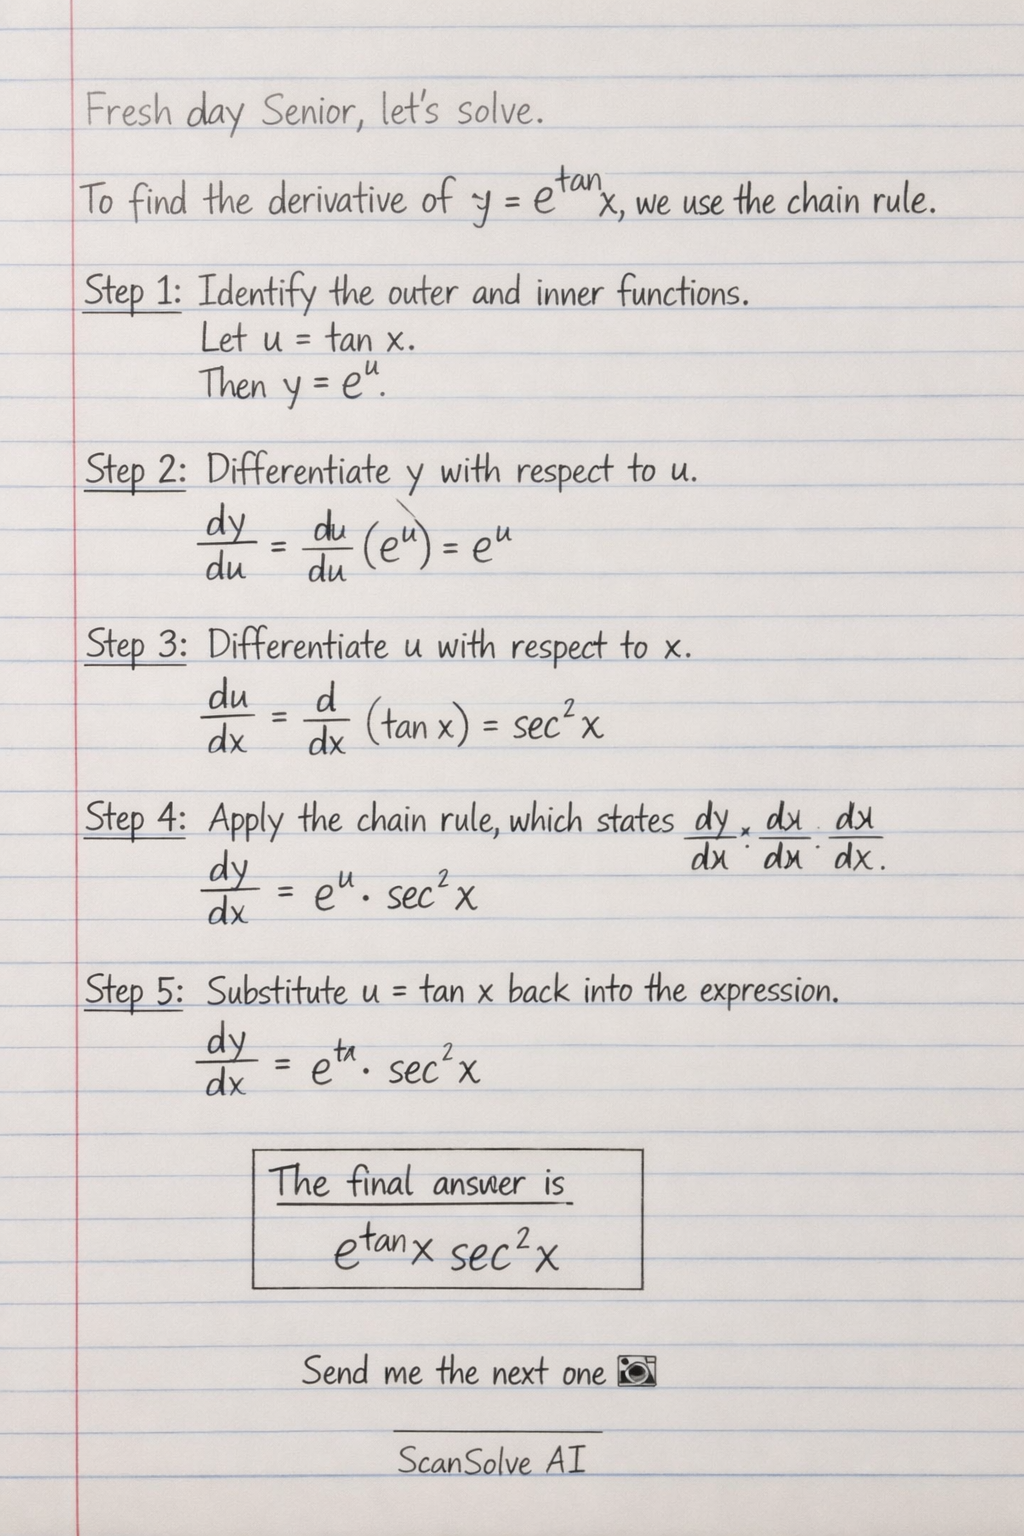 Fresh day Senior, let's solve.
To find the derivative of y = e^tan x, we use the chain rule.
Step 1: Identify the outer and inner functions.
Let u = tan x.
Then y = e^u.
Step 2: Differentiate y with respect to u.
dy/du = du/du (e^u) = e^u
Step 3: Differentiate u with respect to x.
du/dx = d/dx (tan x) = sec^2 x
Step 4: Apply the chain rule, which states
dy/dx = e^u · sec^2 x
Step 5: Substitute u = tan x back into the expression.
dy/dx = e · sec^2 x
The final answer is
e^tan x sec^2 x
Send me the next one 📷
ScanSolve AI